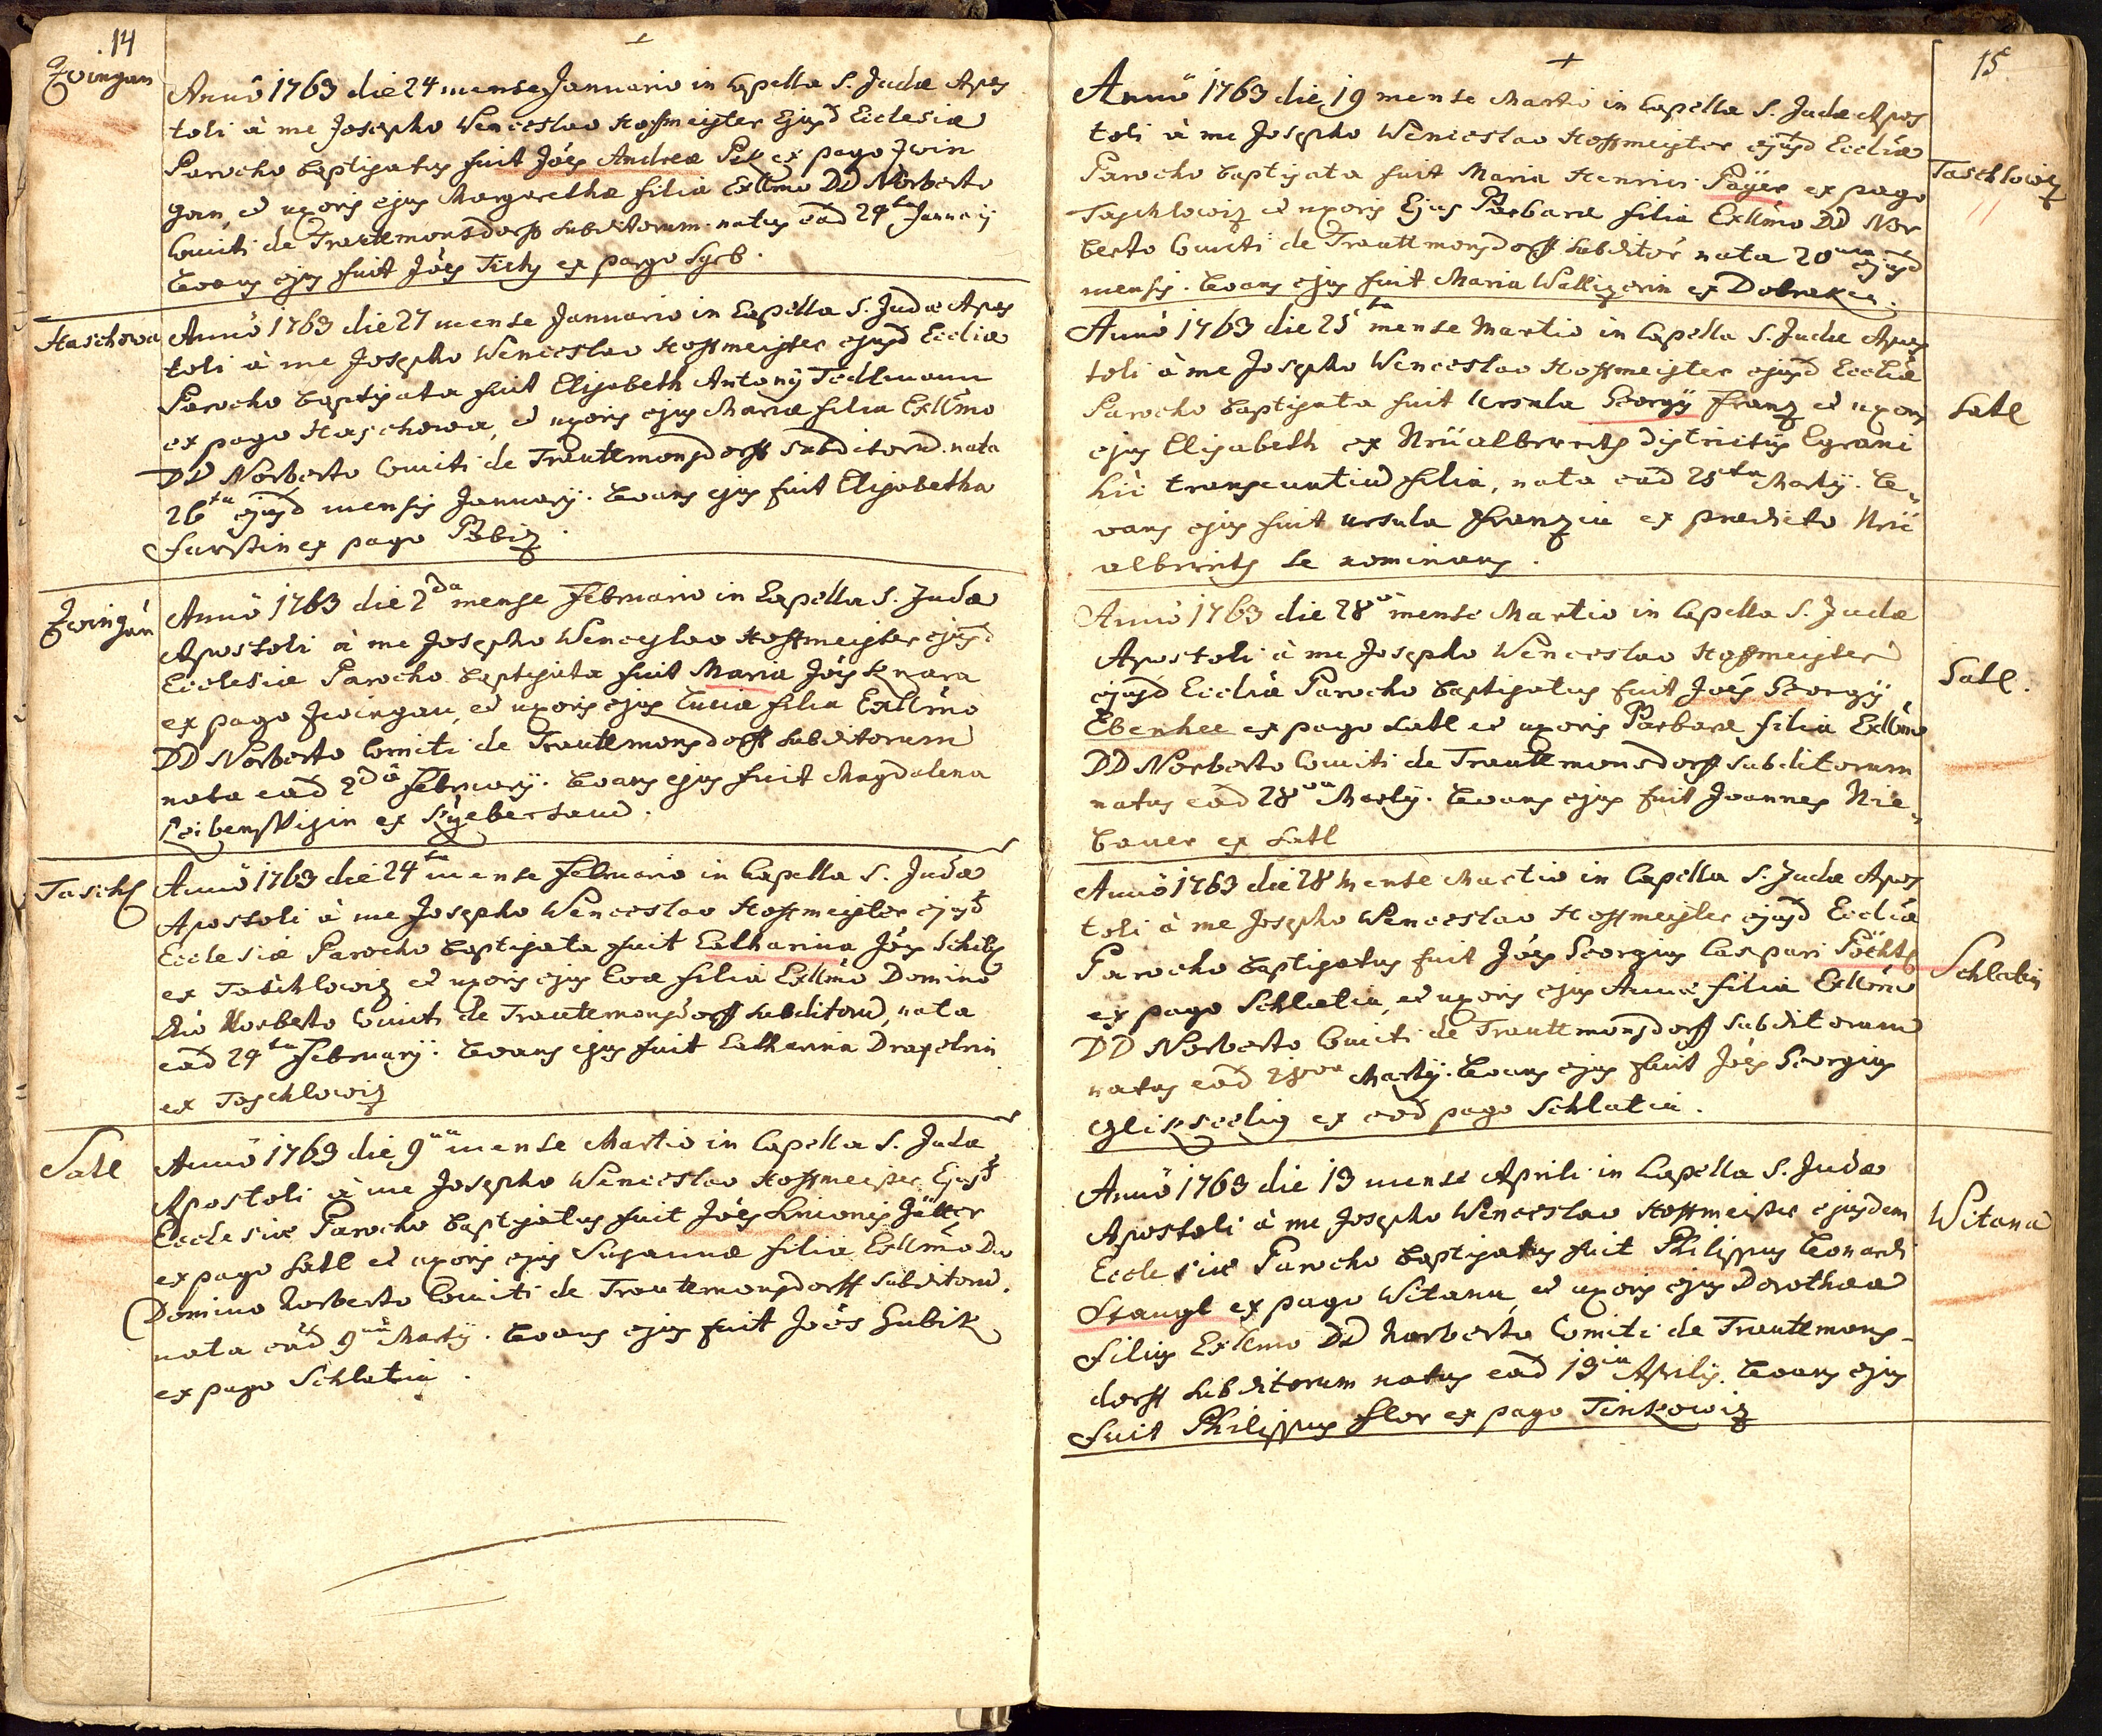 14
Zwingau
Annô 1763 die 24 mense Januario in Capella S. Judæ Apos
toli à me Josepho Wenceslao Hoffmeister Ejusd Eclesiæ
Parocho baptisatus fuit Jôes Andreæ Pek ex pago Zwin
gau, et uxoris ejus Margarethæ filiâ Exllmo DD Norberto
Comiti de Trauttmonsdorff subditorum. natus eâd 24ta Januarij
levans ejus fuit Jôes Tichy ex pago Syrb.
Haschowa
Annô 1763 die 27 mense Januario in Capella S. Judæ Apos
toli à me Josepho Wenceslao Hoffmeister ejusd Ecclîæ
Parocho baptisata fuit Elisabeth Antonij Tedlmann
ex pago Haschowa, et uxoris ejus Mariæ filia Exllmo
DD Norberto Comiti de Trauttmonsdorff subditorû. nata
26ta ejusd mensis Januarij. levans ejus fuit Elisabetha
ex pago Pobiz.
Zwingau
Annô 1763 die 2da mense Februario in Capella S. Judæ
Apostoli à me Josepho Wenceslao Hoffmeister ejusd
Ecclesiæ Parocho baptisata fuit Maria Jôis Knara
ex pago Zwingau, et uxoris ejus Luciæ filia Exllmo
DD Norberto Comiti de Trauttmonsdorff subditorum
nata eâd 2dâ Februarij. levans ejus fuit Magdalena
ex
Taschl
Annô 1763 die 24ta mense Februario in Capella S. Judæ
Apostoli à me Josepho Wenceslao Hoffmeister ejusd
Ecclesiæ Parocho baptisata fuit Catharina Jôis Schilh
ex Taschlowiz et uxoris ejus Evæ filia Exllmo Domino
Dno Norberto Comiti de Trauttmonsdorff subditorû, nata
eâd 24ta Februarij. levans ejus fuit Catharina Draxelrin
ex Taschlowiz
Satl
Annô 1763 die 9na mense Martio in Capella S. Judæ
Apostoli à me Josepho Wenceslao Hoffmeister Ejusd
Ecclesiæ Parocho baptisatus fuit Jôes Simonis Götter
ex pago Satl et uxoris ejus Susannæ filiâ Exllmo Dno
Domino Norberto Comiti de Trauttmonsdorff subditorû.
nata eâd 9nâ Martij. levans ejus fuit Joês Gubik
ex pago Schlatin.
15
Annô 1763 die 19 mense Martio in Capella S. Judæ Apos
toli à me Josepho Wenceslao Hoffmeister ejusd Ecclîæ
Parocho baptisata fuit Maria Henrici Paÿer ex pago
Taschlowiz
Taschlowiz et uxoris Ejus Barbaræ filia Exllmo DD Nor
berto Comiti de Trauttmonsdorff subditor nata 20ma ejusd
mensis. levans ejus fuit Maria Wallizerin ex Dobraken.
Annô 1763 die 25ta mense Martio in Capella S. Judæ Apos
toli à me Josepho Wenceslao Hoffmeister ejusd Ecclîæ
Parocho baptisata fuit Ursula Georgij Franz et uxoris
Satl
ejus Elisabeth ex Nrüalbrreits districtûs Egrani
hîc transeuntiû filia, nata eâd 25ta Martij. le„
vans ejus fuit Ursula Franzin ex prædicto Nrü
albrreits se nominans.
Annô 1763 die 28va mense Martio in Capella S. Judæ
Apostoli à me Josepho Wenceslao Hoffmeister
ejusd Ecclîæ Parocho baptisatus fuit Joês Georgij
Satl.
Ebenhee ex pago Satl et uxoris Barbaræ filiâ Exllmo
DD Norberto Comiti de Trauttmonsdorff subditorum
natus eâd 28va Martij. levans ejus fuit Joannes Nie„
bauer ex Satl
Annô 1763 die 28 mense Martio in Capella S. Judæ Apos
toli à me Josepho Wenceslao Hoffmeister ejusd Ecclîæ
Parocho baptisatus fuit Jôes Georgius Caspari Pöchtl
Schlatin
ex pago Schlatin, et uxoris ejus Annæ filiâ Exllmo
DD Norberto Comiti de Trauttmonsdorff subditorum
natus eâd 28va Martij. levans ejus fuit Jôes Georgius
Glikseelig ex eôd pago Schlatin.
Annô 1763 die 13 mense Aprili in Capella S. Judæ
Apostoli à me Josepho Wenceslao Hoffmeister ejusdem
Witana
Ecclesiæ Parocho baptisatus fuit Philippus Leonardi
Stangl ex pago Witana, et uxoris ejus Dorotheæ
filius Exllmo DD Norberto Comiti de Trauttmons-
dorff subditorum natus eâd 13ia Aprilis. levans ejus
fuit Philippus Flor ex pago Tinkowiz